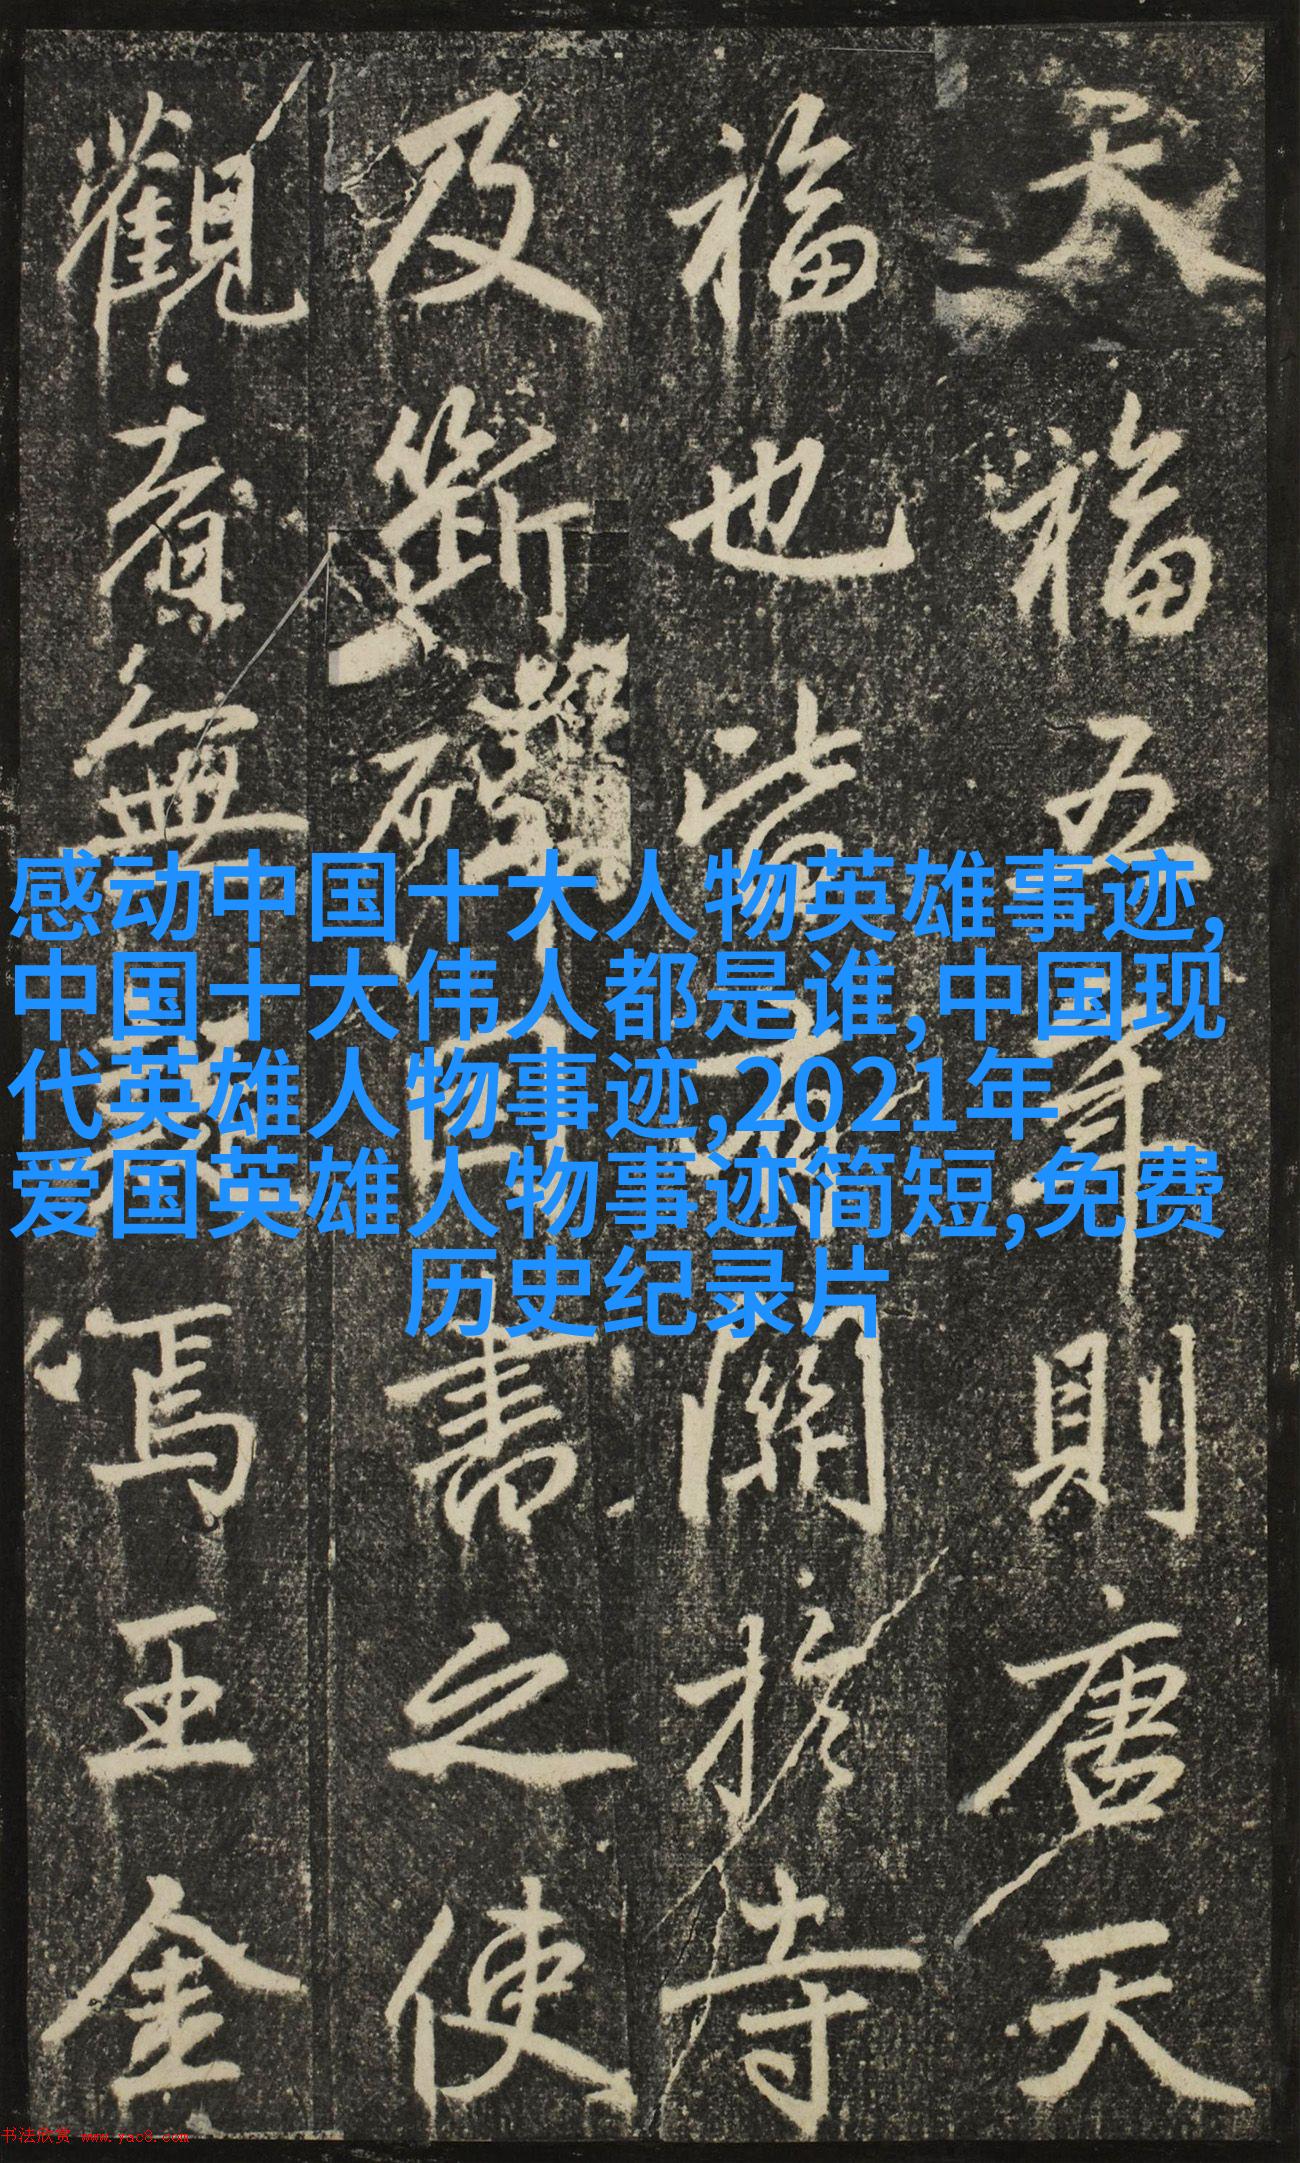 天福五年則唐天
福也皆關於寺
及斷碑書之使
觀者無焉王金
感动中国十大人物英雄事迹,
中国十大伟人都是谁,中国现
代英雄人物事迹,2021年
爱国英雄人物事迹简短,免费
历史纪录片
书法欣赏 www.yac8.com